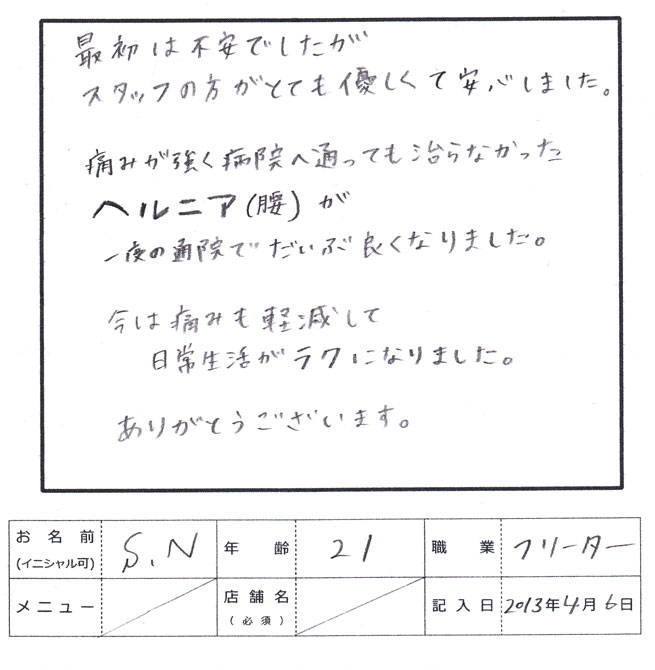 最初は不安でしたが
スタッフの方がとても優しくて安心しました。
痛みが強く病院へ通っても治らなかった
ヘルニア(腰)が
一度の通院でだいぶ良くなりました。
今は痛みも軽減して
日常生活がラクになりました。
ありがとうございます。
お名前 (イニシャル可) S.N 年齢 21 職業 フリーター
メニュー 店舗名 (必須) 記入日 2013年4月6日